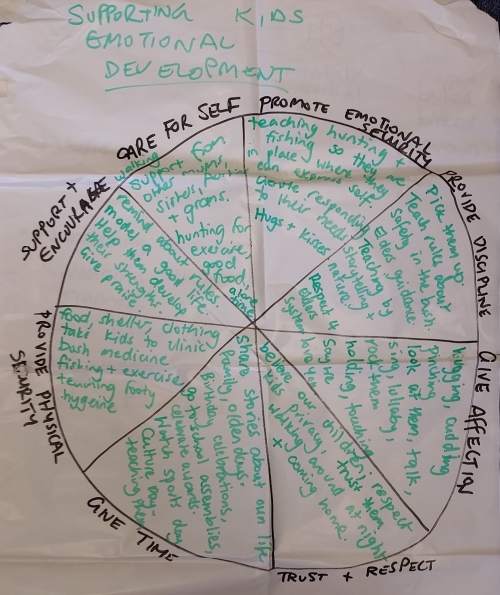 SUPPORTING KIDS
EMOTIONAL
DEVELOPMENT
CARE FOR SELF
walking
support from
other mums,
sisters,
+ groms.
hunting for
exercise,
good
food,
alone
time
PROMOTE EMOTIONAL
SECURITY
teaching hunting +
fishing so they're
in place where they
can express self.
responding
to their needs
Hugs + kisses
storytelling
nature.
PROVIDE DISCIPLINE
Pick them up.
Teach rules about
Safety in the bush.
Elders guidance.
Teaching by
storytelling +
Respect 4
elders
system
GIVE AFFECTION
Hugging, cuddling
look at them, talk,
sing, lullaby,
rock them
holding, touching
Say we
love you
TRUST + RESPECT
believe our children. respect
privacy, trust them
kids walking around at night
+ coming home.
GIVE TIME
Share stories about own life
family, olden days.
Birthday celebrations,
go to school assemblies,
celebrate awards.
Watch sports day
Culture day.
teaching them
PROVIDE PHYSICAL
SECURITY
food, shelter, clothing
take kids to clinic
bush medicine
fishing + exercise
teaming footy
hygeine
SUPPORT +
ENCOURAGE
remind about rules
model a good life.
Help them develop
their strengths.
Give praise.